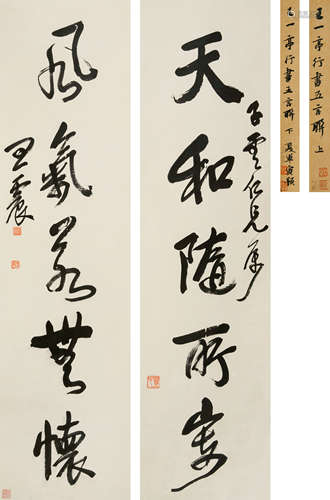 天和隨所寄
子雲仁兄屬
風氣若無懷
王震
王一亭行書五言聯 上
王一亭行書五言聯 下